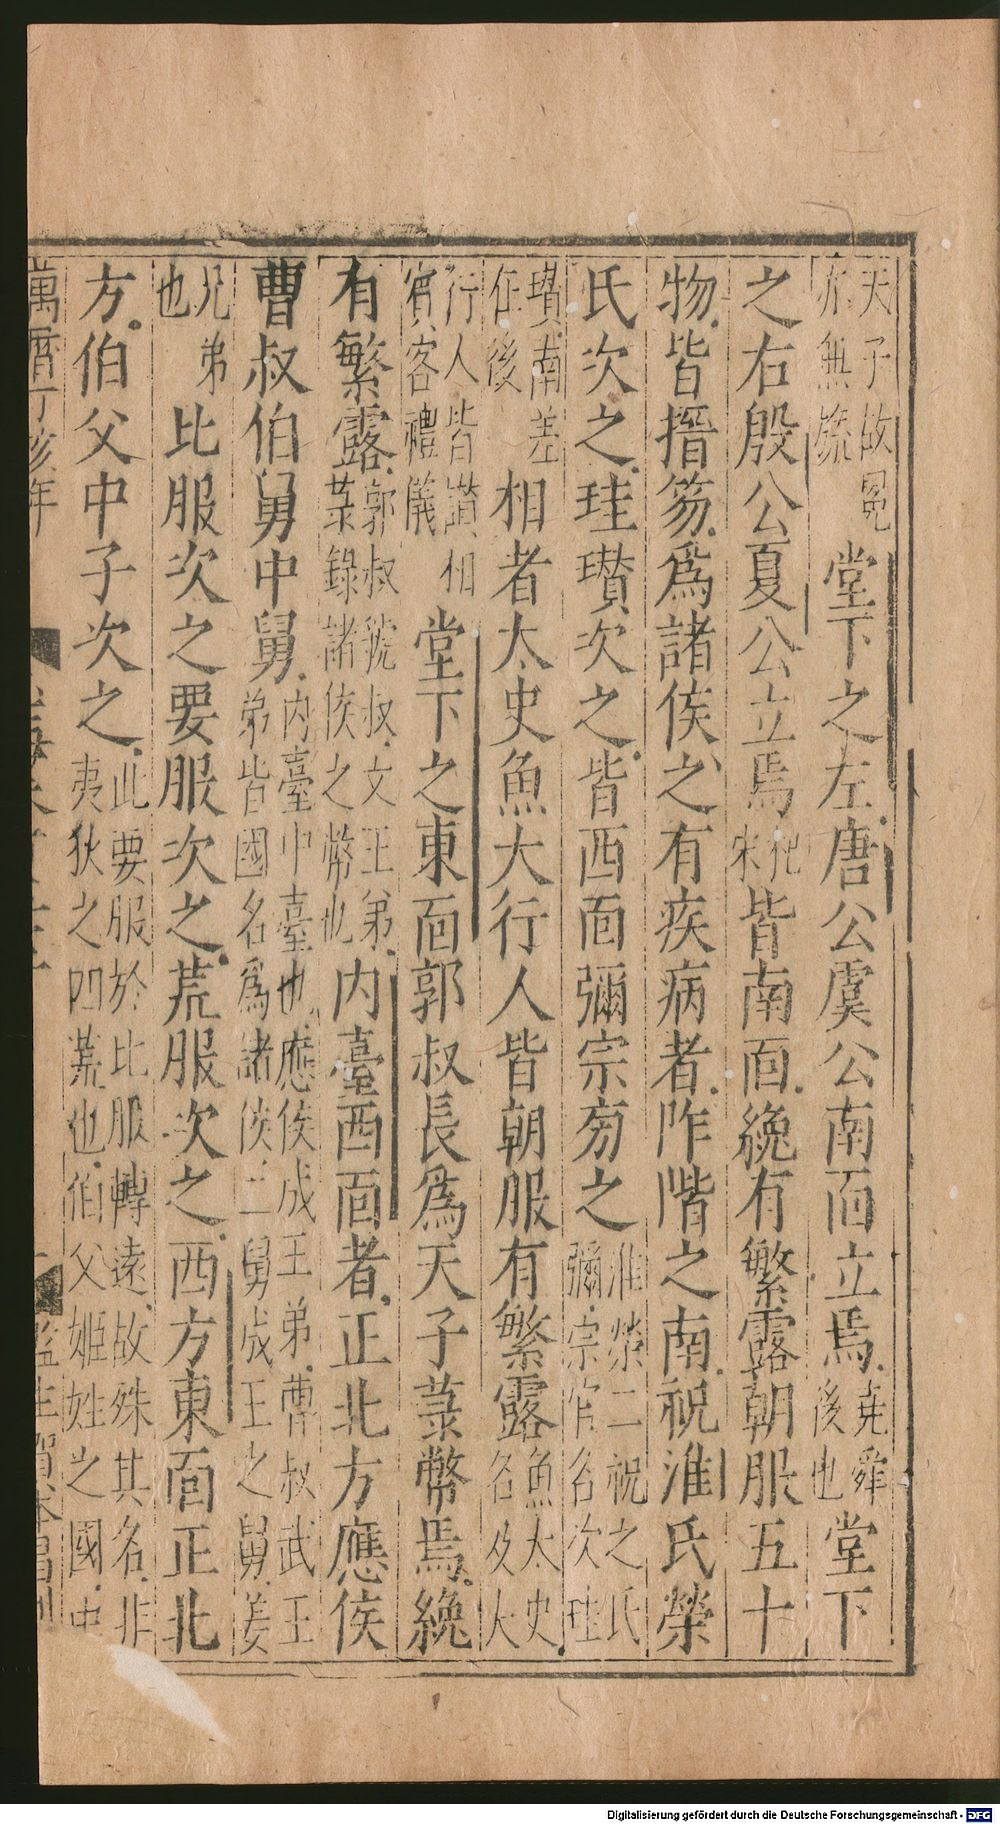 天子故冕亦無旒堂下之左唐公虞公南面立焉堯舜後也堂下
之右殷公夏公立焉杞宋皆南面絻有繁露朝服五十
物皆搢笏爲諸侯之有疾病者阼階之南祝淮氏榮
氏次之珪瓚次之皆西面彌宗旁之淮榮二祝之氏彌宗官名次珪
瓚南差在後相者太史魚大行人皆朝服有繁露魚太史名及大
行人皆讃相賔客禮儀堂下之東面郭叔長爲天子菉幣焉絻
有繁露郭叔虢叔文王弟菉錄諸侯之幣也内臺西面者正北方應侯
曹叔伯舅中舅内臺中臺也應侯成王弟曹叔武王弟皆國名爲諸侯二舅成王之舅姜
兄弟也比服次之要服次之荒服次之西方東面正北
方伯父中子次之此要服於比服轉遠故殊其名非夷狄之四荒也伯父姬姓之國中
萬曆丁亥年
Digitalisierung gefördert durch die Deutsche Forschungsgemeinschaft - DFG